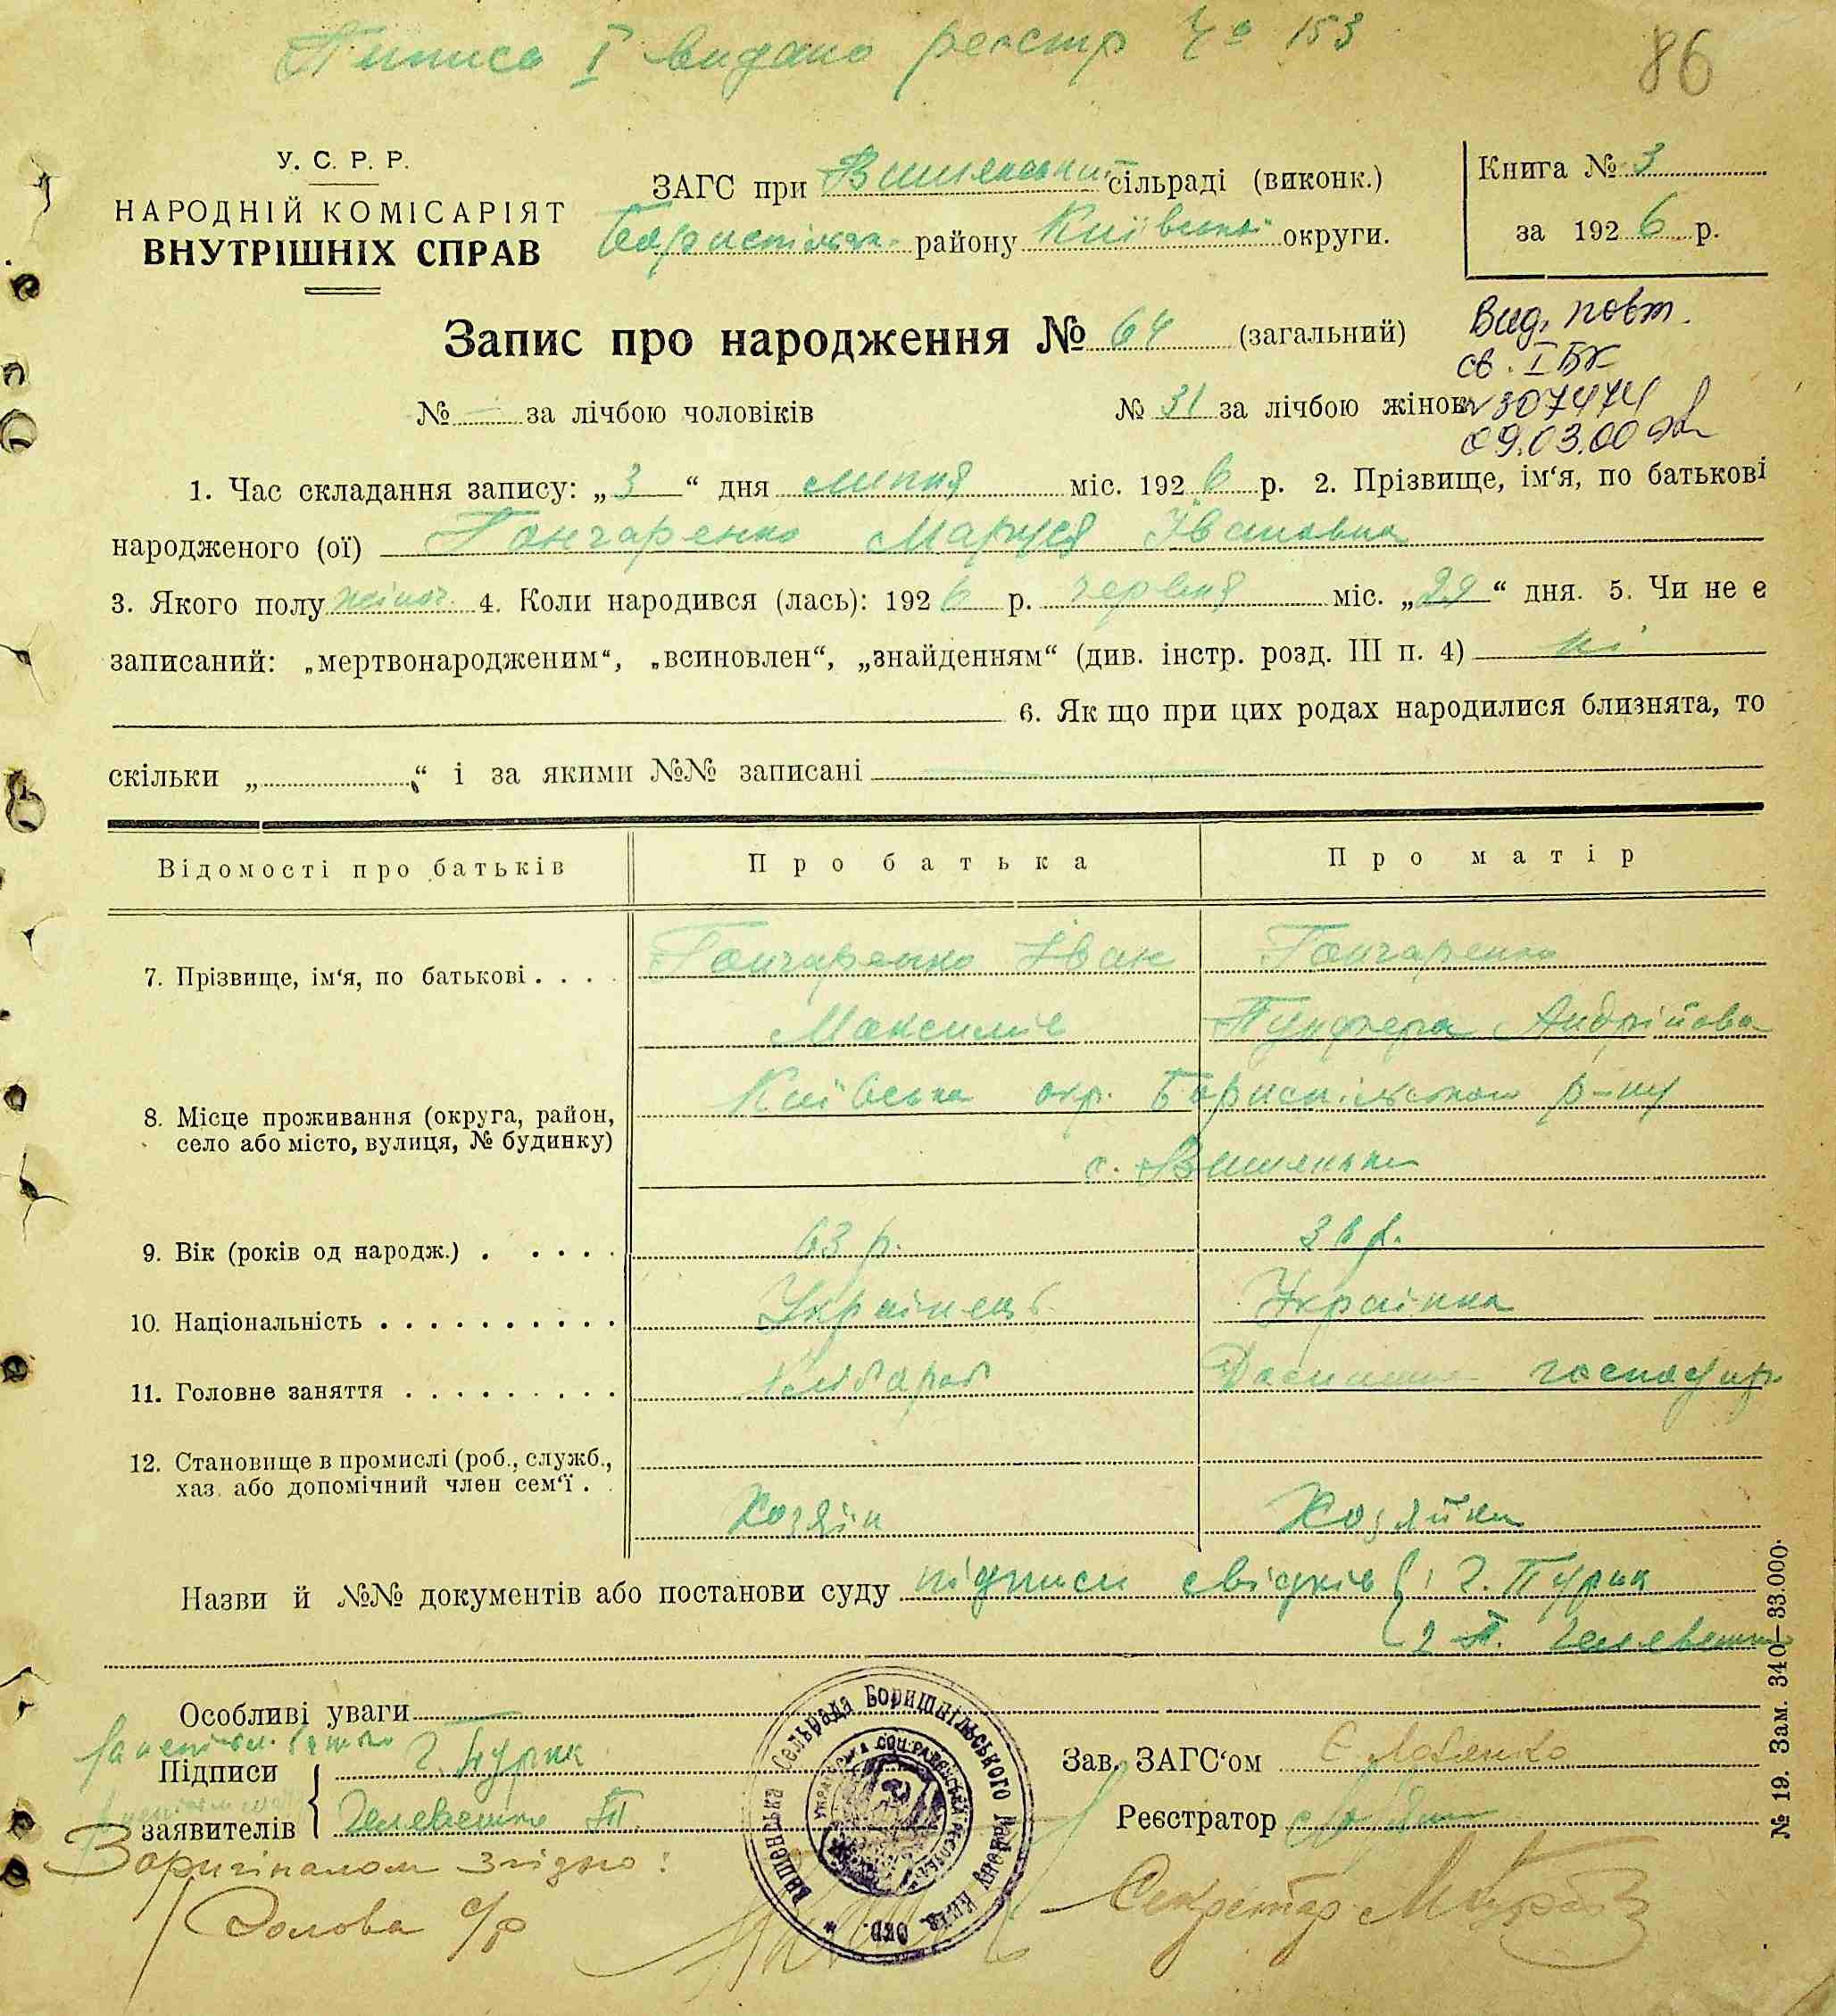 видано реєстр № 153
86
У. С. Р. Р.
НАРОДНІЙ КОМІСАРІЯТ
ВНУТРІШНІХ СПРАВ
ЗАГС при Вишенській сільраді (виконк.)
району Київської округи.
Книга № 3
за 1926 р.
Запис про народження № 64 (загальний)
Вид. повт.
св. І БК
№ 307474
09.03.00
№ — за лічбою чоловіків
№ 31 за лічбою жінок
1. Час складання запису: „3“ дня липня міс. 1926 р. 2. Прізвище, ім‘я, по батькові
народженого (ої) Гончаренко Маруся Івановна
3. Якого полу жіноч. 4. Коли народився (лась): 1926 р. червня міс. „29“ дня. 5. Чи не є
записаний: „мертвонародженим“, „всиновлен“, „знайденням“ (див. інстр. розд. III п. 4) ні
6. Як що при цих родах народилися близнята, то
скільки „ “ і за якими №№ записані
Відомості про батьків
Про батька
Про матір
7. Прізвище, ім‘я, по батькові . . . .
Гончаренко Іван
Максимів
Гончаренко
Андрійова
8. Місце проживання (округа, район,
село або місто, вулиця, № будинку)
Київська окр. Бориспільського р-ну
с. Вишеньки
9. Вік (років од народж.) . . . . .
63 р.
36 р.
10. Національність . . . . . . . . . .
Українець
Українка
11. Головне заняття . . . . . . . . .
Хлібароб
господар.
12. Становище в промислі (роб., служб.,
хаз. або допомічний член сем‘ї . .
Хозяін
Хозяйка
Назви й №№ документів або постанови суду підписи свідків { 1 Г. Пурик
2 П.
Особливі уваги —
Підписи
заявителів
Г. Пурик
П.
Зав. ЗАГС‘ом
Реєстратор
Вишенська Сельрада Боришпільського Району Київ. Окр.
УКРАЇНСЬКА СОЦ. РАДЯНСЬКА РЕСПУБЛ.
З оригіналом згідно:
Голова с/р
Секретар
№ 19. Зам. 340—33.000.